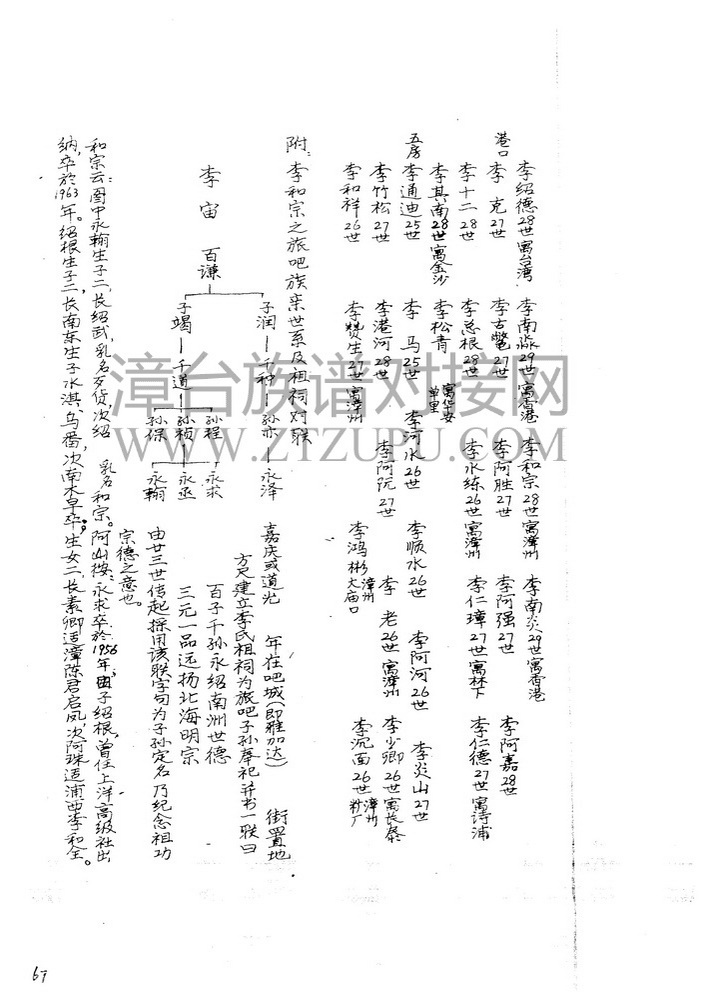 李绍德28世寓台湾 李南淼29世寓香港 李和宗28世寓漳州 李南炎29世寓香港
港口 李克27世 李古鳖27世 李阿胜27世 李阿强27世 李阿嘉28世
李十二28世 李总根28世 李水练26世寓漳州 李仁璋27世寓林下 李仁德27世寓诗浦
李其南28世寓金沙 李松青寓华安
五房 李通迪25世 李马25世 李河水26世 李顺水26世 李阿河26世 李炎山27世
李竹松27世 李港河28世 李阿阮27世 李老26世寓漳州 李少卿26世寓长泰
李和祥26世 李赞生27世寓漳州 李鸿彬漳州大庙口 李沉面26世漳州
附:李和宗之旅吧族亲世系及祖祠对联
李宙 百谦
子润—千种—孙亦—永泽
子竭—千道
孙程—永求
孙桢—永丞
孙保—永翰
嘉庆或道光 年在吧城(即雅加达) 街置地
方尺建立李氏祖祠为旅吧子孙奉祀并书一联曰
百子千孙永绍南洲世德
三元一品远扬北海明宗
由廿三世传起採用该联字句为子孙定名乃纪念祖功
宗德之意也。
和宗云:图中永翰生子二,长绍武,乳名歹货次绍 乳名和宗。阿山按:永求卒於1956年,子绍根,曾任上洋高级社出
纳,卒於1963年。绍根生子二,长南东生子水淇、乌番,次南木早卒;生女二,长素卿适漳陈君启凤,次阿珠适浦西李和全。
67
漳台族谱对接网
WWW.ZTZUPU.COM